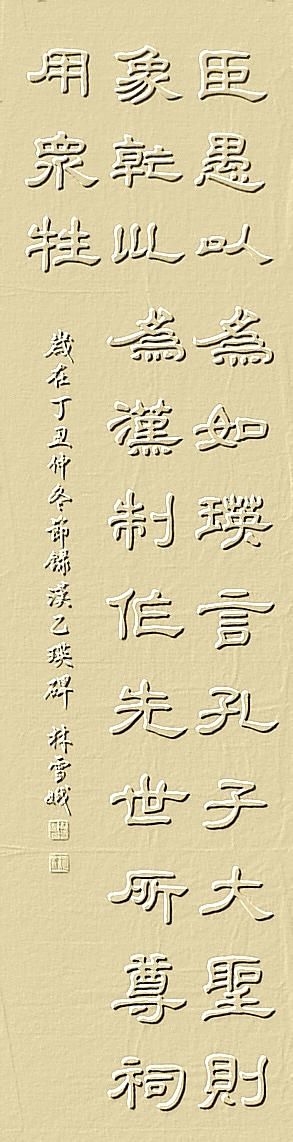 臣愚以為如瑛言孔子大聖則
象乾川為漢制作先世所尊祠
用眾牲
歲在丁丑仲冬節錄漢乙瑛碑 林雪娥